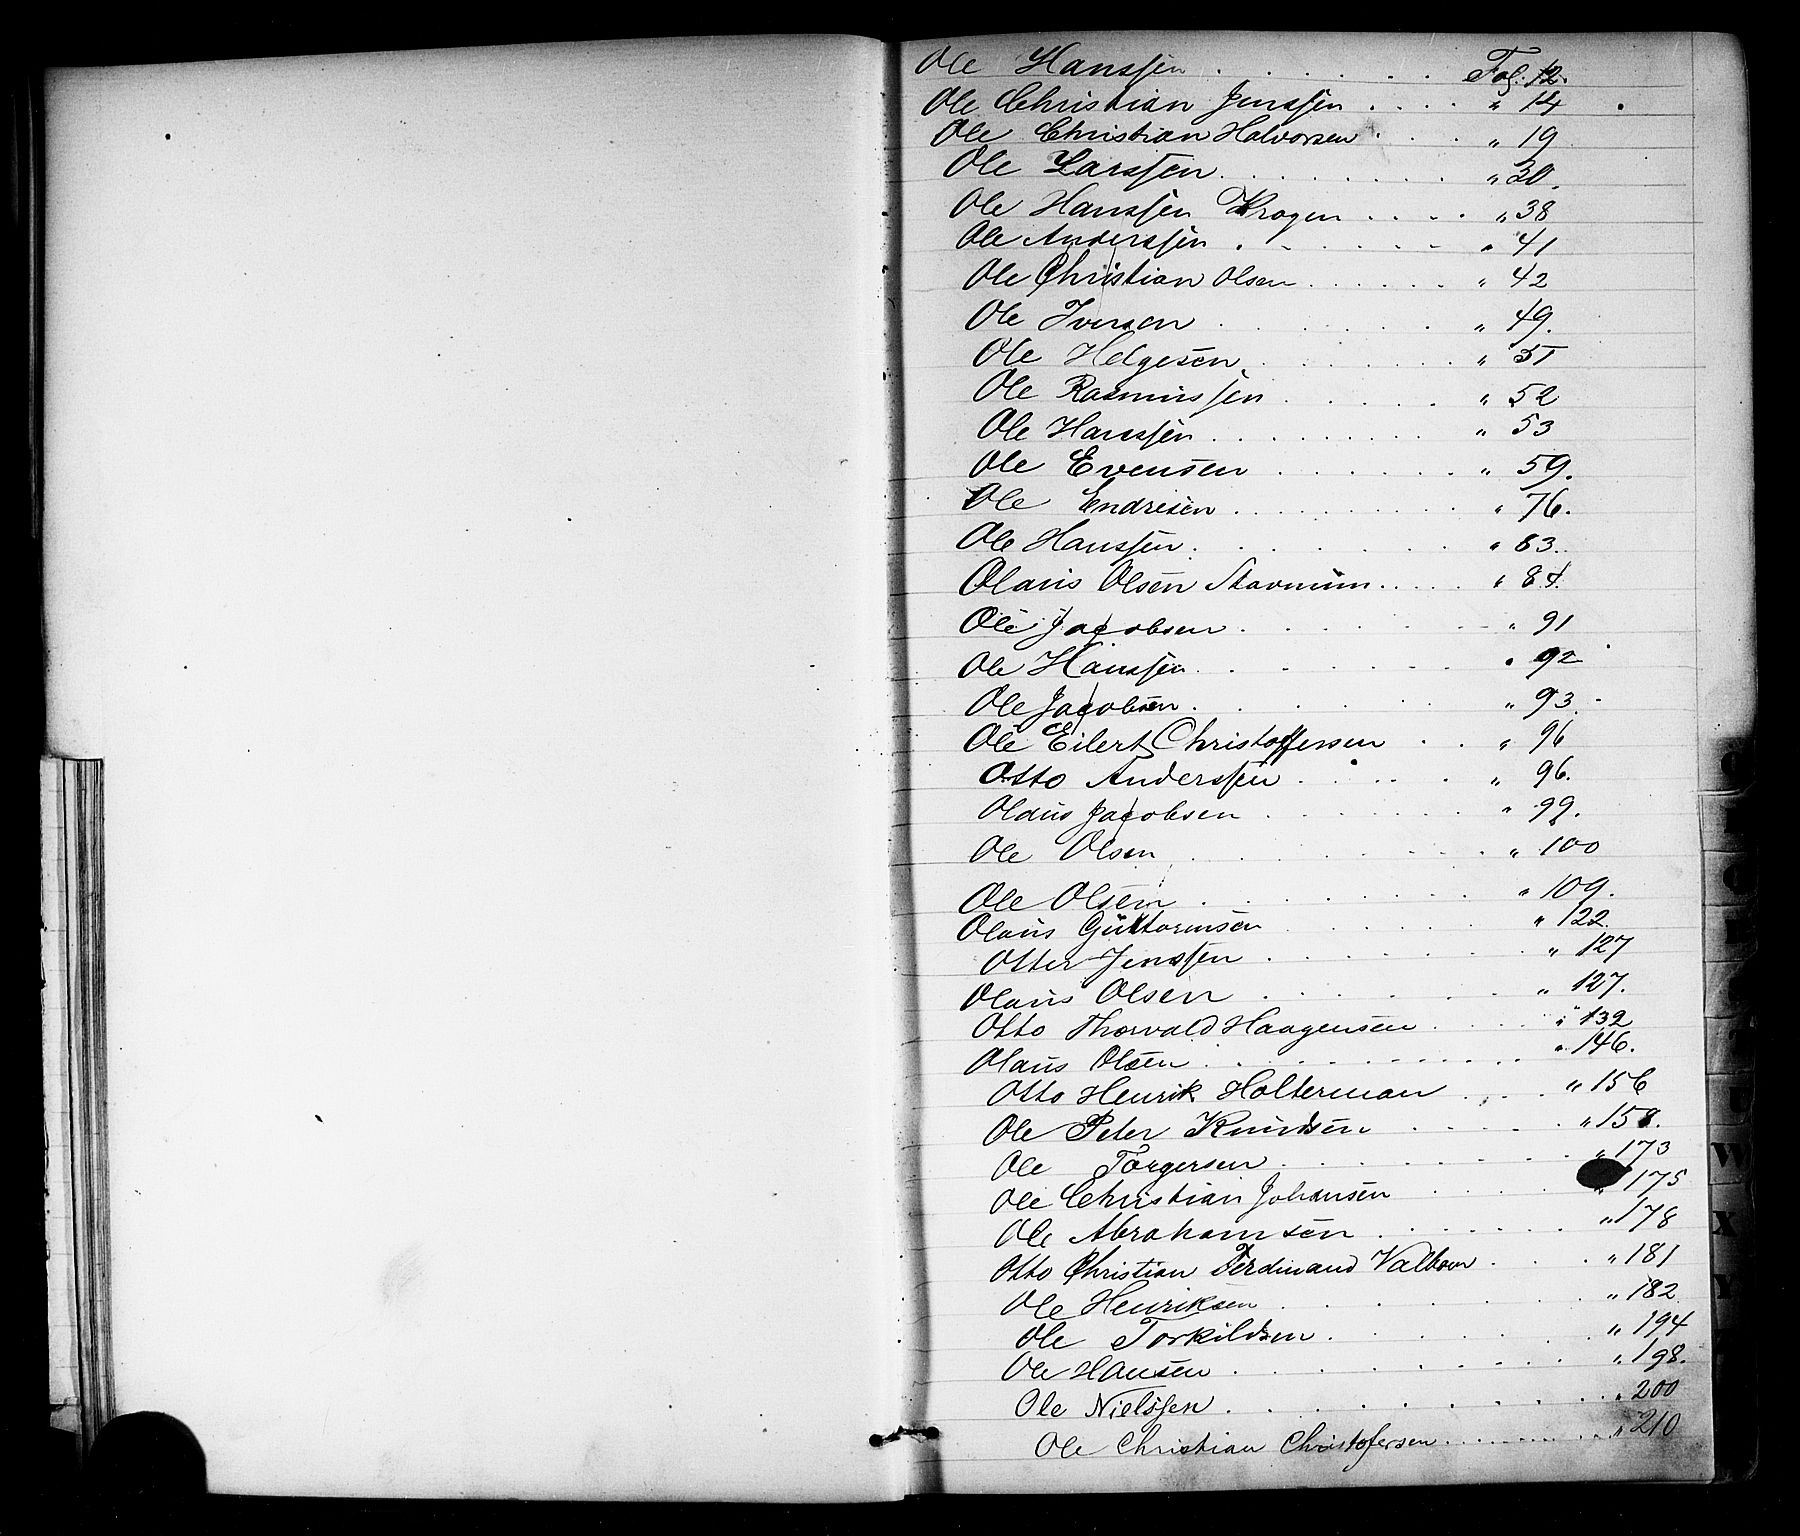 Ole Hanssen . . . . . . Fol. 12.
Ole Christian Jenssen . . . . " 14
Ole Christian Halvorsen . . . . " 19
Ole Larssen . . . . . . . . " 30.
Ole Hanssen Krogen . . . . " 38
Ole Anderssen . . . . . . " 41
Ole Christian Olsen . . . . . . " 42
Ole Iversen . . . . . . . " 49.
Ole Helgesen . . . . . . . " 51
Ole Rasmussen . . . . . " 52
Ole Hanssen . . . . . . . " 53
Ole Evensen . . . . . . " 59.
Ole Endresen . . . . . . . . " 76.
Ole Hanssen . . . . . . . " 83.
Olaus Olsen Stavnum . . . . " 84.
Ole Jacobsen . . . . . . . " 91
Ole Hanssen . . . . . . . " 92
Ole Jacobsen . . . . . . " 93.
Ole Eilert Christoffersen . . " 96
Otto Anderssen . . . . . " 96.
Olaus Jacobsen . . . . . . " 99.
Ole Olsen . . . . . . . " 100
Ole Olsen . . . . . . . " 109.
Olaus Guttormsen . . . . . . " 122.
Otter Jenssen . . . . . . . " 127
Olaus Olsen . . . . . . " 127.
Otto Thorvald Haagensen . . . . " 132
Olaus Olsen . . . . . . . . . " 146.
Otto Henrik Holterman . . . . " 156
Ole Peter Knudsen . . . . . " 158.
Ole Torgersen . . . . . . . . " 173
Ole Christian Johansen . . . . " 175
Ole Abrahamsen . . . . . " 178
Otto Christian Ferdinand Valboer . . . " 181
Ole Henriksen . . . . . . . " 182
Ole Torkildsen . . . . . . " 194
Ole Hansen . . . . . . . . " 198.
Ole Nielssen . . . . . . . . . " 200
Ole Christian Christofersen . . . . . . " 210
W
X
Y